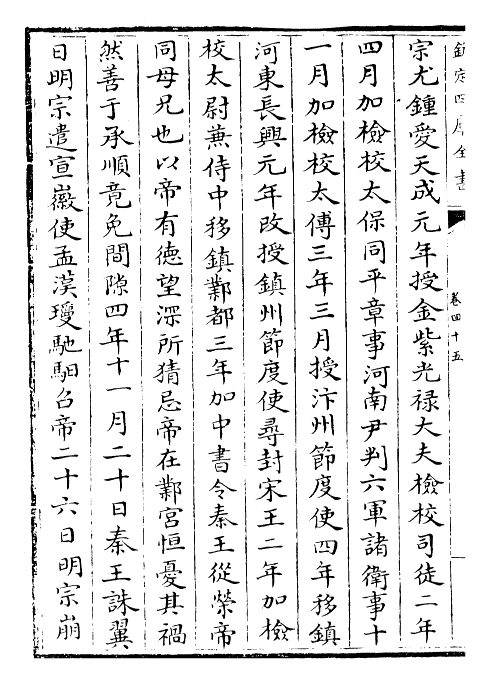 欽定四庫全書
卷四十五
宗尤鍾愛天成元年授金紫光禄大夫檢校司徒二年
四月加檢校太保同平章事河南尹判六軍諸衛事十
一月加檢校太傅三年三月授汴州節度使四年移鎮
河東長興元年改授鎮州節度使尋封宋王二年加檢
校太尉兼侍中移鎮鄴都三年加中書令秦王從榮帝
同母兄也以帝有徳望深所猜忌帝在鄴宮恒憂其禍
然善于承順竟免間隙四年十一月二十日秦王誅翼
日明宗遣宣徽使孟漢瓊馳馹召帝二十六日明宗崩